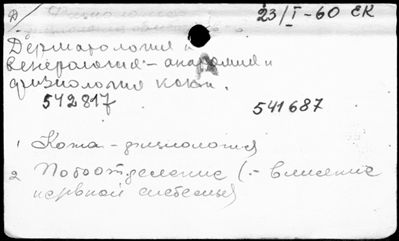 Д
23/I-60 ЕК
Дерматология и
венерология - анатомия и
физиология кожи.
542817 541687
1 Кожа - физиология
2 Потоотделение (- влияние
нервной системы)